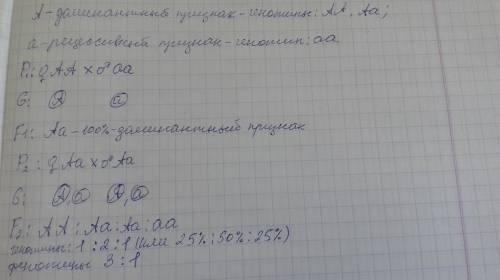 А-даминантный признак-генотипы: АА, Аа;
а-рецосивный признак-генотип: аа
P₁: ♀ АА × ♂ аа
G: А а
F1: Аа-100%-даминантный признак
P₂: ♀ Аа × ♂ Аа
G: А а А, а
F₂: АА : Аа : Аа : аа
генотипы: 1 : 2 : 1 (или 25% : 50% : 25%)
фенотипы 3 : 1